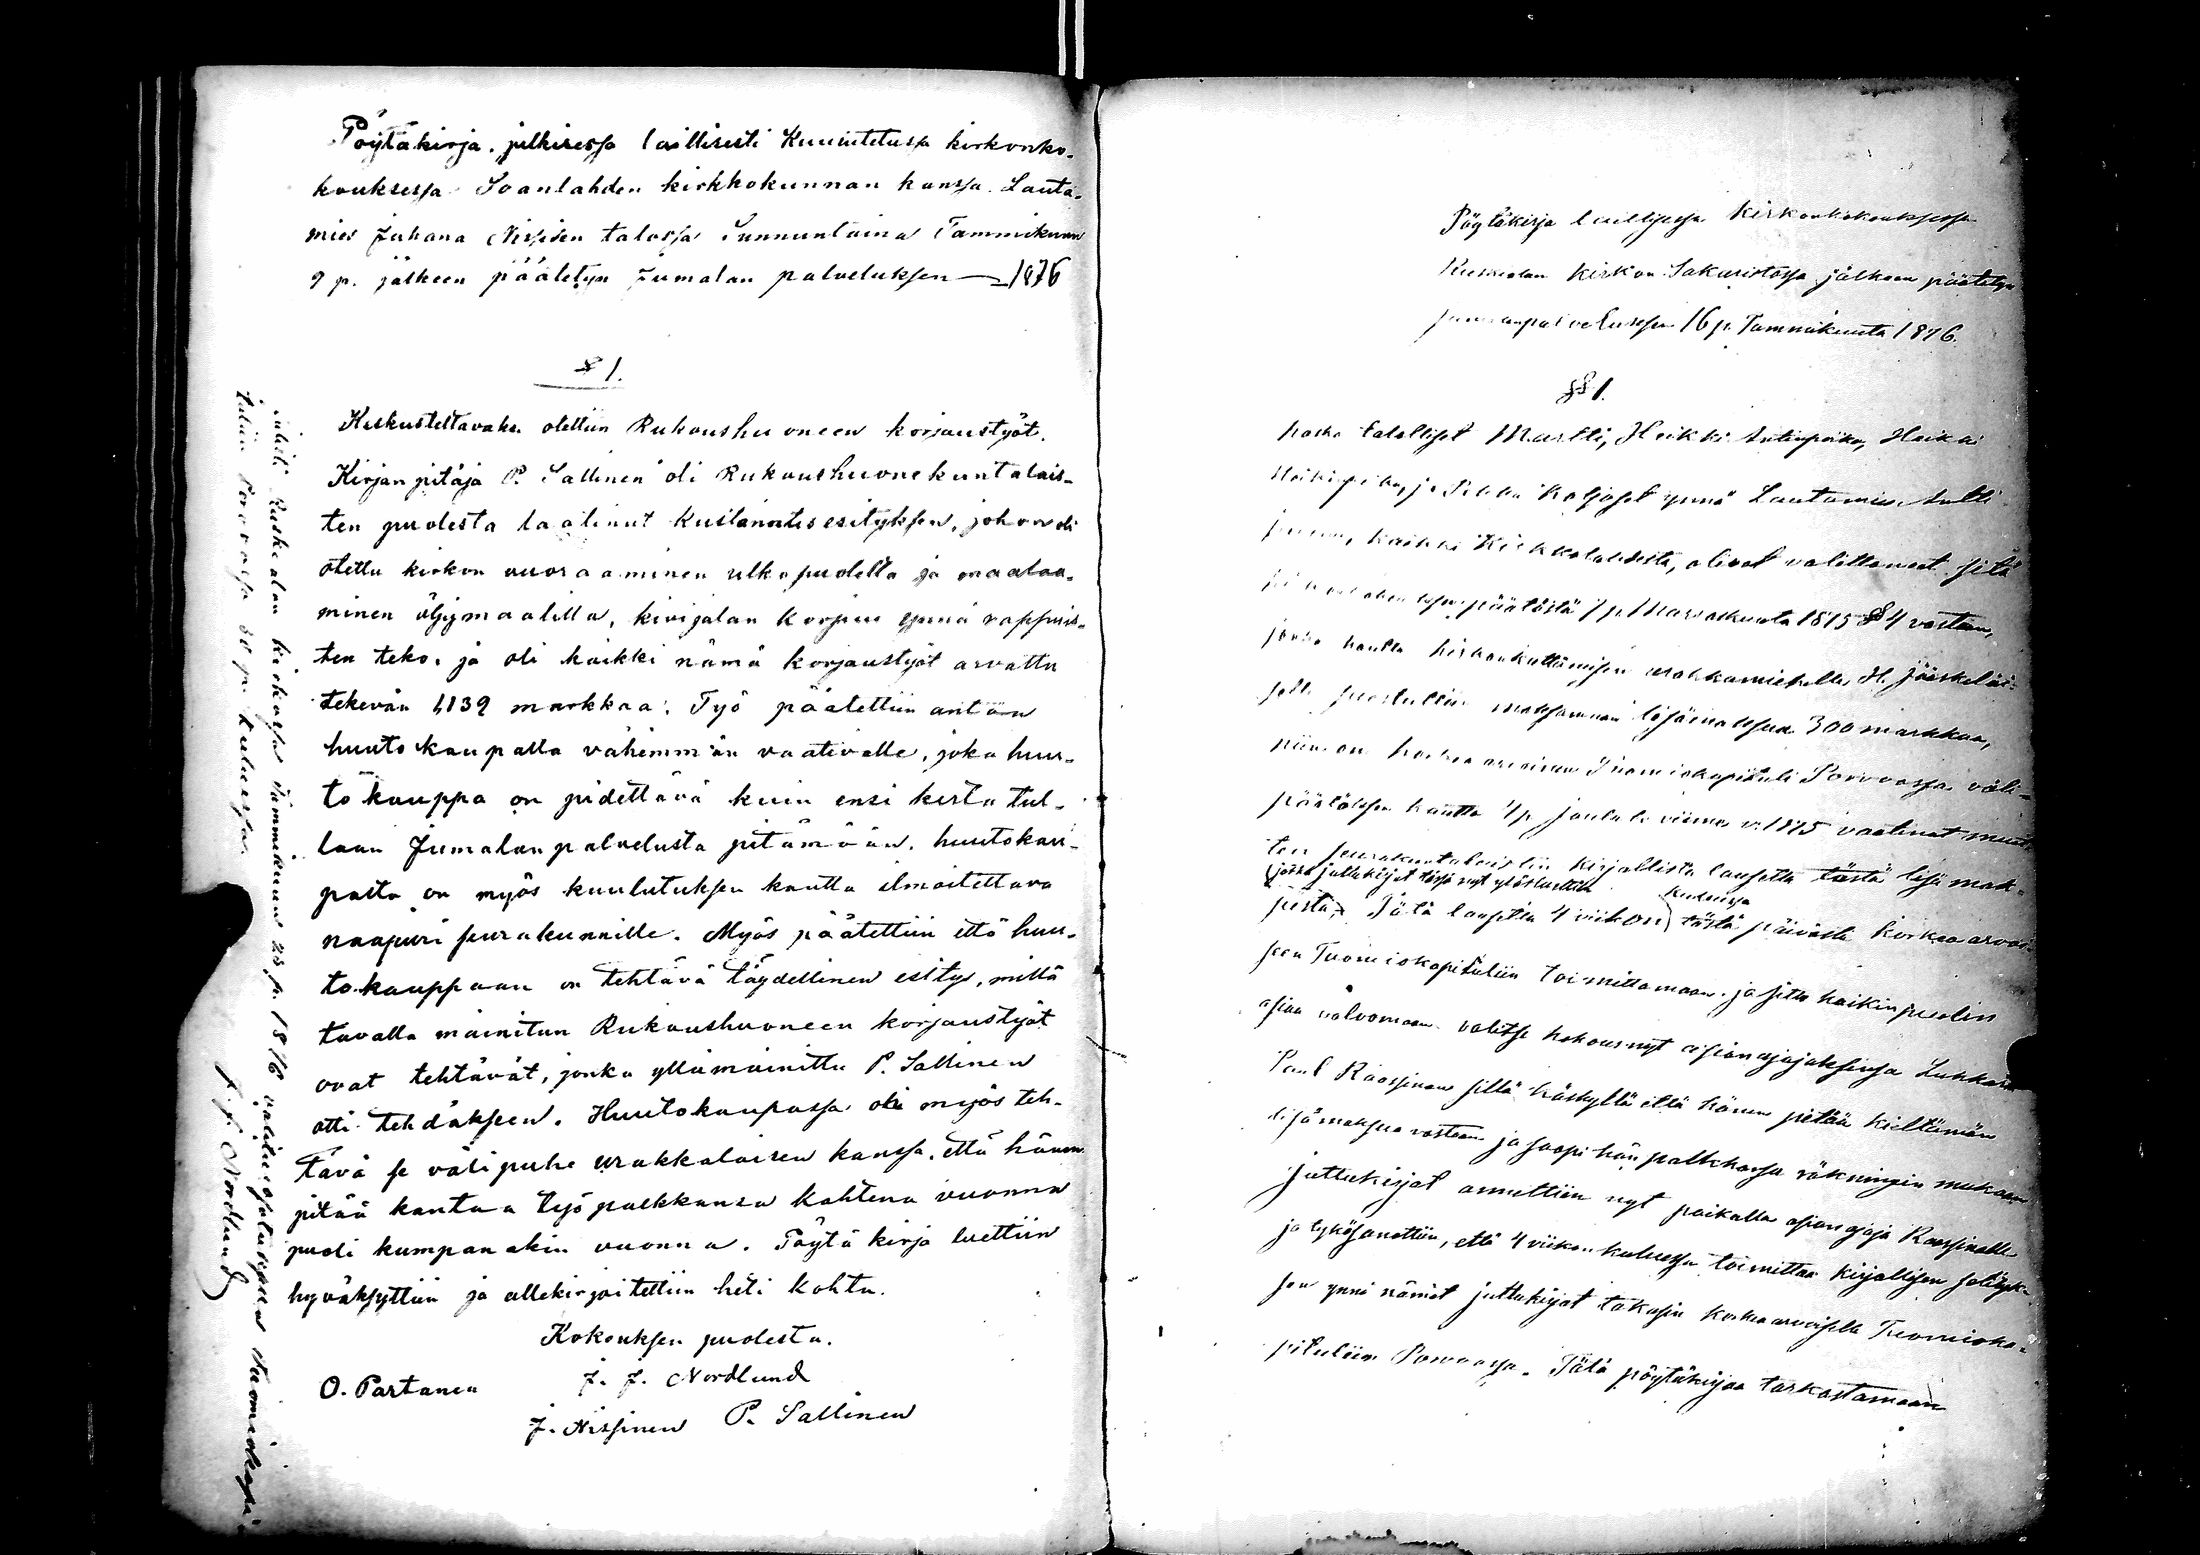 Pöytäkirja julkisessa laillisesti Kuulutetussa kirkonko-
kouksessa Soanlahden kirkkokunnan kanssa Lauta-
mies Juhana Nissisen talossa Sunnuntaina Tammikuun
9 p. jälkeen päätetyn Jumalan palveluksen 1876
§ 1.
Keskusteltavaksi otettiin Rukoushuoneen korjaustyöt.
Kirjanpitäjä P. Sallinen oli Rukoushuonekuntalais-
ten puolesta laatinut Kustannusesityksen, johon oli
otettu kirkon vuoraaminen ulkopuolelta ja maalaa-
minen öljymaalilla, kivijalan korjuu ynnä rappuis-
ten teko, ja oli kaikki nämä korjaustyöt arvattu
tekevän 1,139 markkaa. Työ päätettiin antaa
huutokaupalla vähemmän vaativalle, joka huu-
tokauppa on pidettävä kuin ensi kerta tul-
laan Jumalanpalvelusta pitämään, huutokau-
pasta on myös kuulutuksen kautta ilmoitettava
naapuri seurakunnille. Myös päätettiin että huu-
tokauppaan on tehtävä täydellinen esitys, millä
tavalla mainitun Rukoushuoneen korjaustyöt
ovat tehtävät, jonka yllämainittu P. Sallinen
otti tehdäksen. Huutokaupassa oli myös teh-
tävä se välipuhe urakkalaisen kanssa, että hänen
pitää kantaa työpalkkansa kahtena vuonna
puoli kumpanakin vuonna. Pöytäkirja luettiin
hyväksyttiin ja allekirjoitettiin heti kohta.
Kokouksen puolesta.
O. Partanen J. J. Nordlund
J. Nissinen P. Sallinen
Ruskealan kirkossa Tammikuun 23 p. 1876 Tuomiokapi-
tuliin Porvoossa 30 p. kuluessa.
J. J. Nordlund
Pöytäkirja laillisessa Kirkonkokouksessa
Ruskealan kirkon Sakaristossa jälkeen päätetyn
Jumalanpalveluksen 16 p. Tammikuuta 1876.
§ 1.
Koska talolliset Martti, Heikki Antinpoika, Heikki
Heikinpoika, ja Pekka Koljoset ynnä Lautamies Antti
kaikki Kirkkolahdesta, olivat valittaneet sitä
päätöstä 7 p. Marraskuuta 1875 § 4 vastaan,
jonka kautta kirkonkattamisen urakkamiehelle, H. Jääskeläi-
selle suostuttiin maksamaan lisämaksua 300 markkaa,
niin on korkea arvoinen Tuomiokapituli Porvoossa väli-
päätöksen kautta 4 p. Joulukuuta viime v. 1875 vaatinut
ten seurakuntalaisten kirjallista lausetta tästä lisämak-
(jossa juttukirjat tässä nyt ylösluettiin
kuluessa
sosta. Tätä lausetta 4 viikon tästä päivästä korkea arvoi-
seen Tuomiokapituliin toimittamaan ja sitte kaikinpuolin
asiaa valvomaan valitsi kokous nyt asianajajaksensa Lukkari
Paul Raassinan sillä käskyllä että hänen pitää kieltämän
lisämaksua vastaan ja saapi hän palkkansa räkningin mukaan
Juttukirjat annettiin nyt paikalla asianajaja Raassinalle
ja tykösanottiin, että 4 viikon kuluessa toimittaa kirjallisen selityk-
sen ynnä nämät juttukirjat takasin korkea arvoiselle Tuomioka-
pituliin Porvoossa. Tätä pöytäkirjaa tarkastamaan